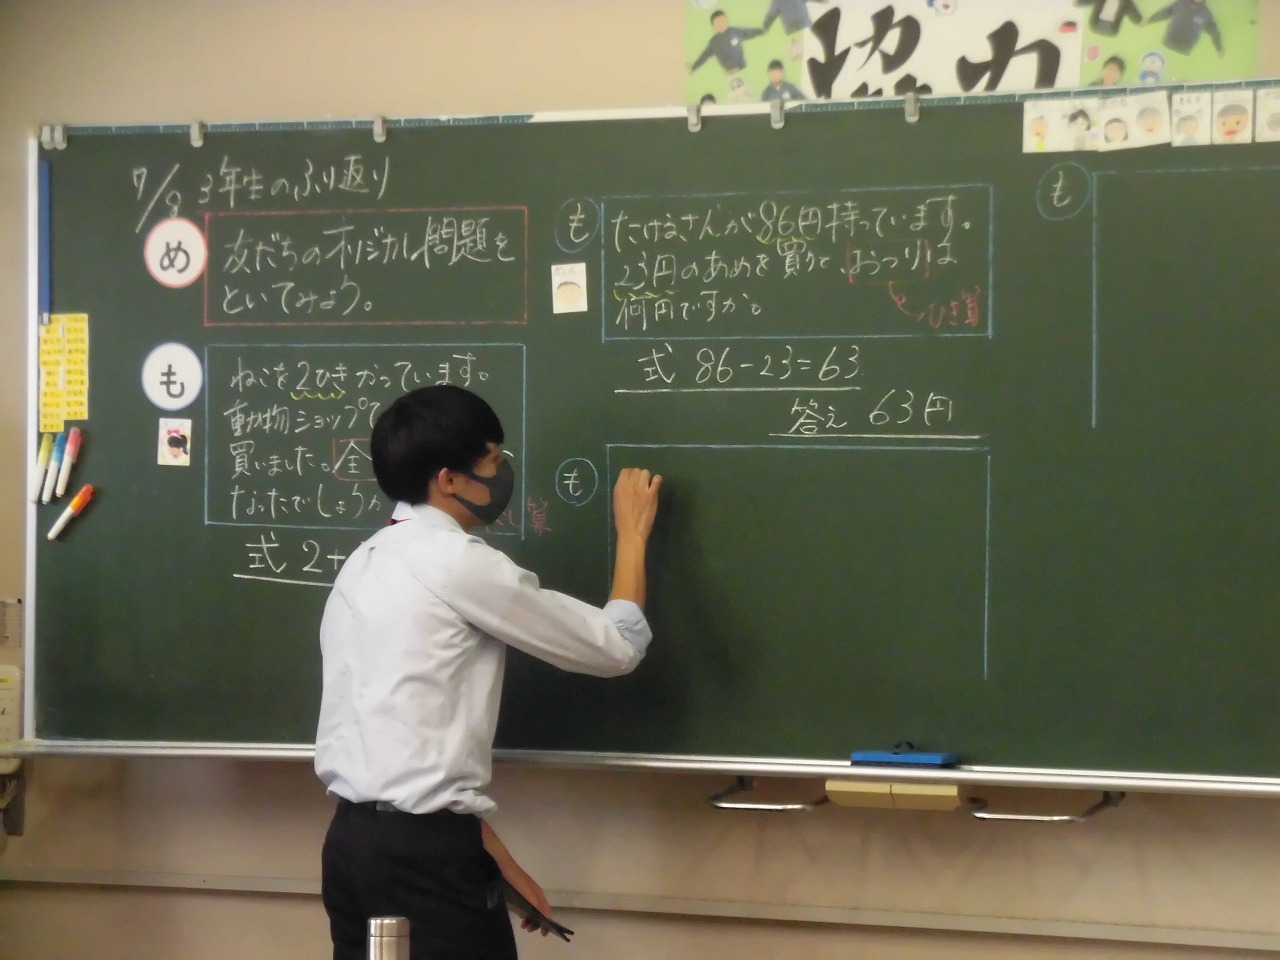 協力
7/8 3年生のふり返り
め
友だちのオリジナル問題を
といてみよう。
も
ねこを2ひきかっています。
動物ショップで
買いました。全
なったでしょうか
算
式 2+
も
たけるさんが86円持っています。
23円のあめを買うと、おつりは
何円ですか。
ひき算
式 86-23=63
答え 63円
も
も